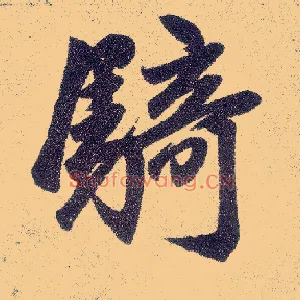 騎
Shufawang.cn